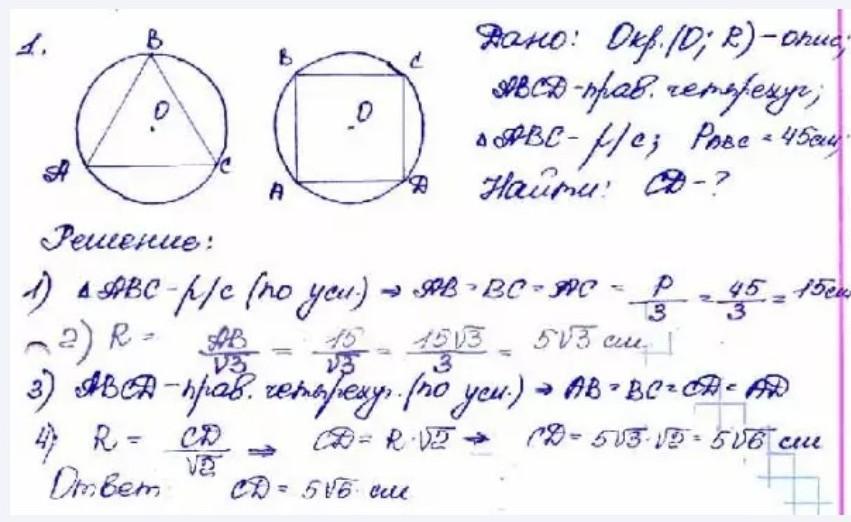 1.
B
O
A
C
B
C
O
A
D
Дано: Окр.(O; R) - опис;
ABCD - прав. четырехуг;
△ABC - р/с; P_ABC = 45см;
Найти: CD - ?
Решение:
1) △ABC - р/с (по усл.) ⇒ AB = BC = AC = P/3 = 45/3 = 15см
2) R = AB/√3 = 15/√3 = 15√3/3 = 5√3 см
3) ABCD - прав. четырехуг. (по усл.) ⇒ AB = BC = CD = AD
4) R = CD/√2 ⇒ CD = R·√2 ⇒ CD = 5√3·√2 = 5√6 см
Ответ CD = 5√6 см